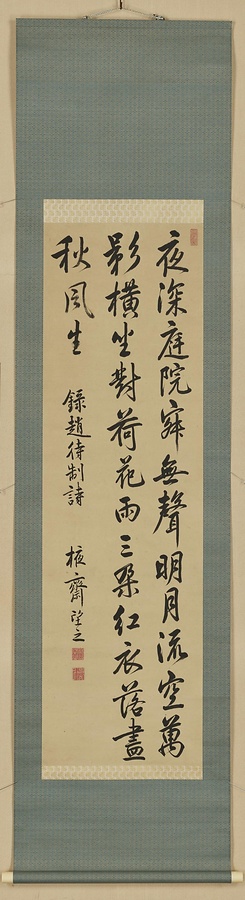 夜深庭院寂無聲明月流空萬
影横坐對荷花兩三朶紅衣落盡
秋風生
録趙待制詩
掖齋望之